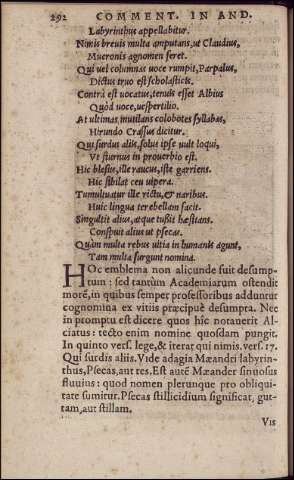 292 COMMENT. IN AND.
Labyrinthus appellabitur.
Nimis breuis multa amputans, ut Claudius,
Mucronis agnomen feret.
Qui uel columnas uoce rumpit, Parpalus,
Dictus truo est scholasticis.
Contrà est uocatus, tenuis esset Albius
Quòd uoce, uespertilio.
At ultimas, mutilans colobotes syllabas,
Hirundo Crassus dicitur.
Qui surdus aliis, solus ipse uult loqui,
Vt sturnus in prouerbio est.
Hic blesus, ille raucus, iste garriens.
Hic sibilat ceu uipera.
Tumultuatur ille rictu, & naribus.
Huic lingua terebellam facit.
Singultit alius, atque tussit hæsitans.
Conspuit alius ut psecas.
Quàm multa rebus uitia in humanis agunt,
Tam multa surgunt nomina.
HOc emblema non alicunde fuit desump-
tum: sed tantum Academiarum ostendit
morē, in quibus semper professoribus adduntur
cognomina ex vitiis præcipuè desumpta. Nec
in promptu est dicere quos hîc notauerit Al-
ciatus: tecto enim nomine quosdam pungit.
In quinto vers. lege, & iterat qui nimis. vers. 17.
Qui surdis aliis. Vide adagia Mæandri labyrin-
thus, Psecas, aut res. Est autē Mæander sinuosus
fluuius: quod nomen plerunque pro obliqui-
tate sumitur. Psecas stillicidium significat, gut-
tam, aut stillam.
Vis